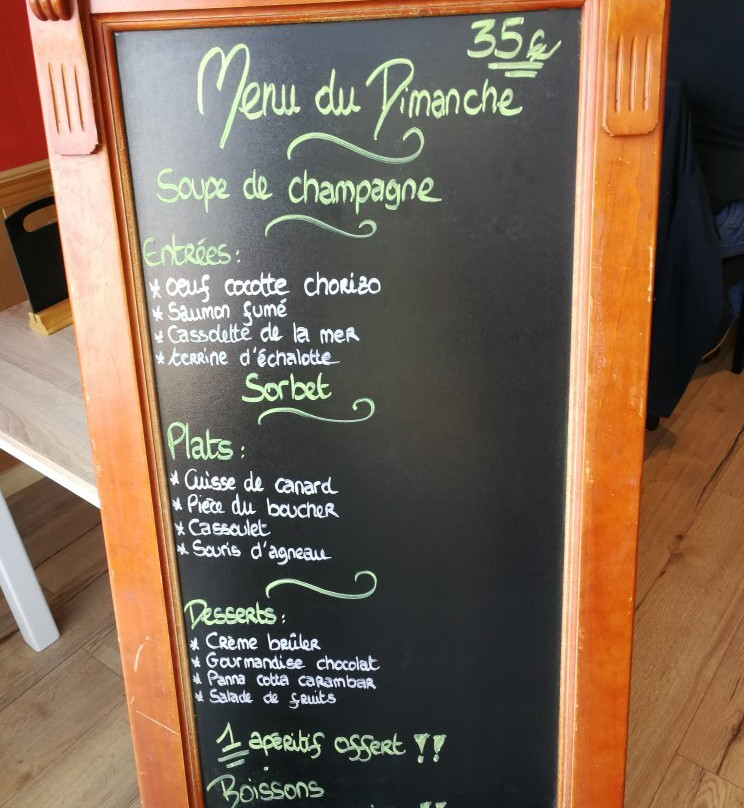 35€
Menu du Dimanche
Soupe de champagne
Entrées :
* oeuf cocotte chorizo
* Saumon fumé
* Cassolette de la mer
* terrine d'échalotte
Sorbet
Plats :
* Cuisse de canard
* Pièce du boucher
* Cassoulet
* Souris d'agneau
Desserts :
* Crème brûler
* Gourmandise chocolat
* Panna cotta carambar
* Salade de fruits
1 apéritif offert !!
Boissons